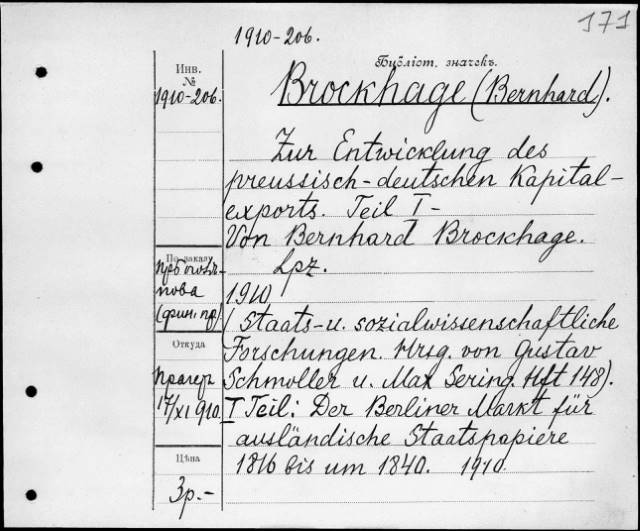 171
1910-206.
Библіот. значекъ.
Инв.
№
1910-206.
Brockhage (Bernhard).
Zur Entwicklung des
preussisch-deutschen Kapital-
exports. Teil I-
Von Bernhard Brockhage.
Lpz.
1910
(Staats- u. sozialwissenschaftliche
Forschungen. Hrsg. von Gustav
Schmoller u. Max Sering. Hft 148).
I Teil: Der Berliner Markt für
ausländische Staatspapiere
1816 bis um 1840. 1910.
По заказу
пова
(фин. пр)
Откуда
Прагеръ
17/XI 910.
Цѣна
3р.-